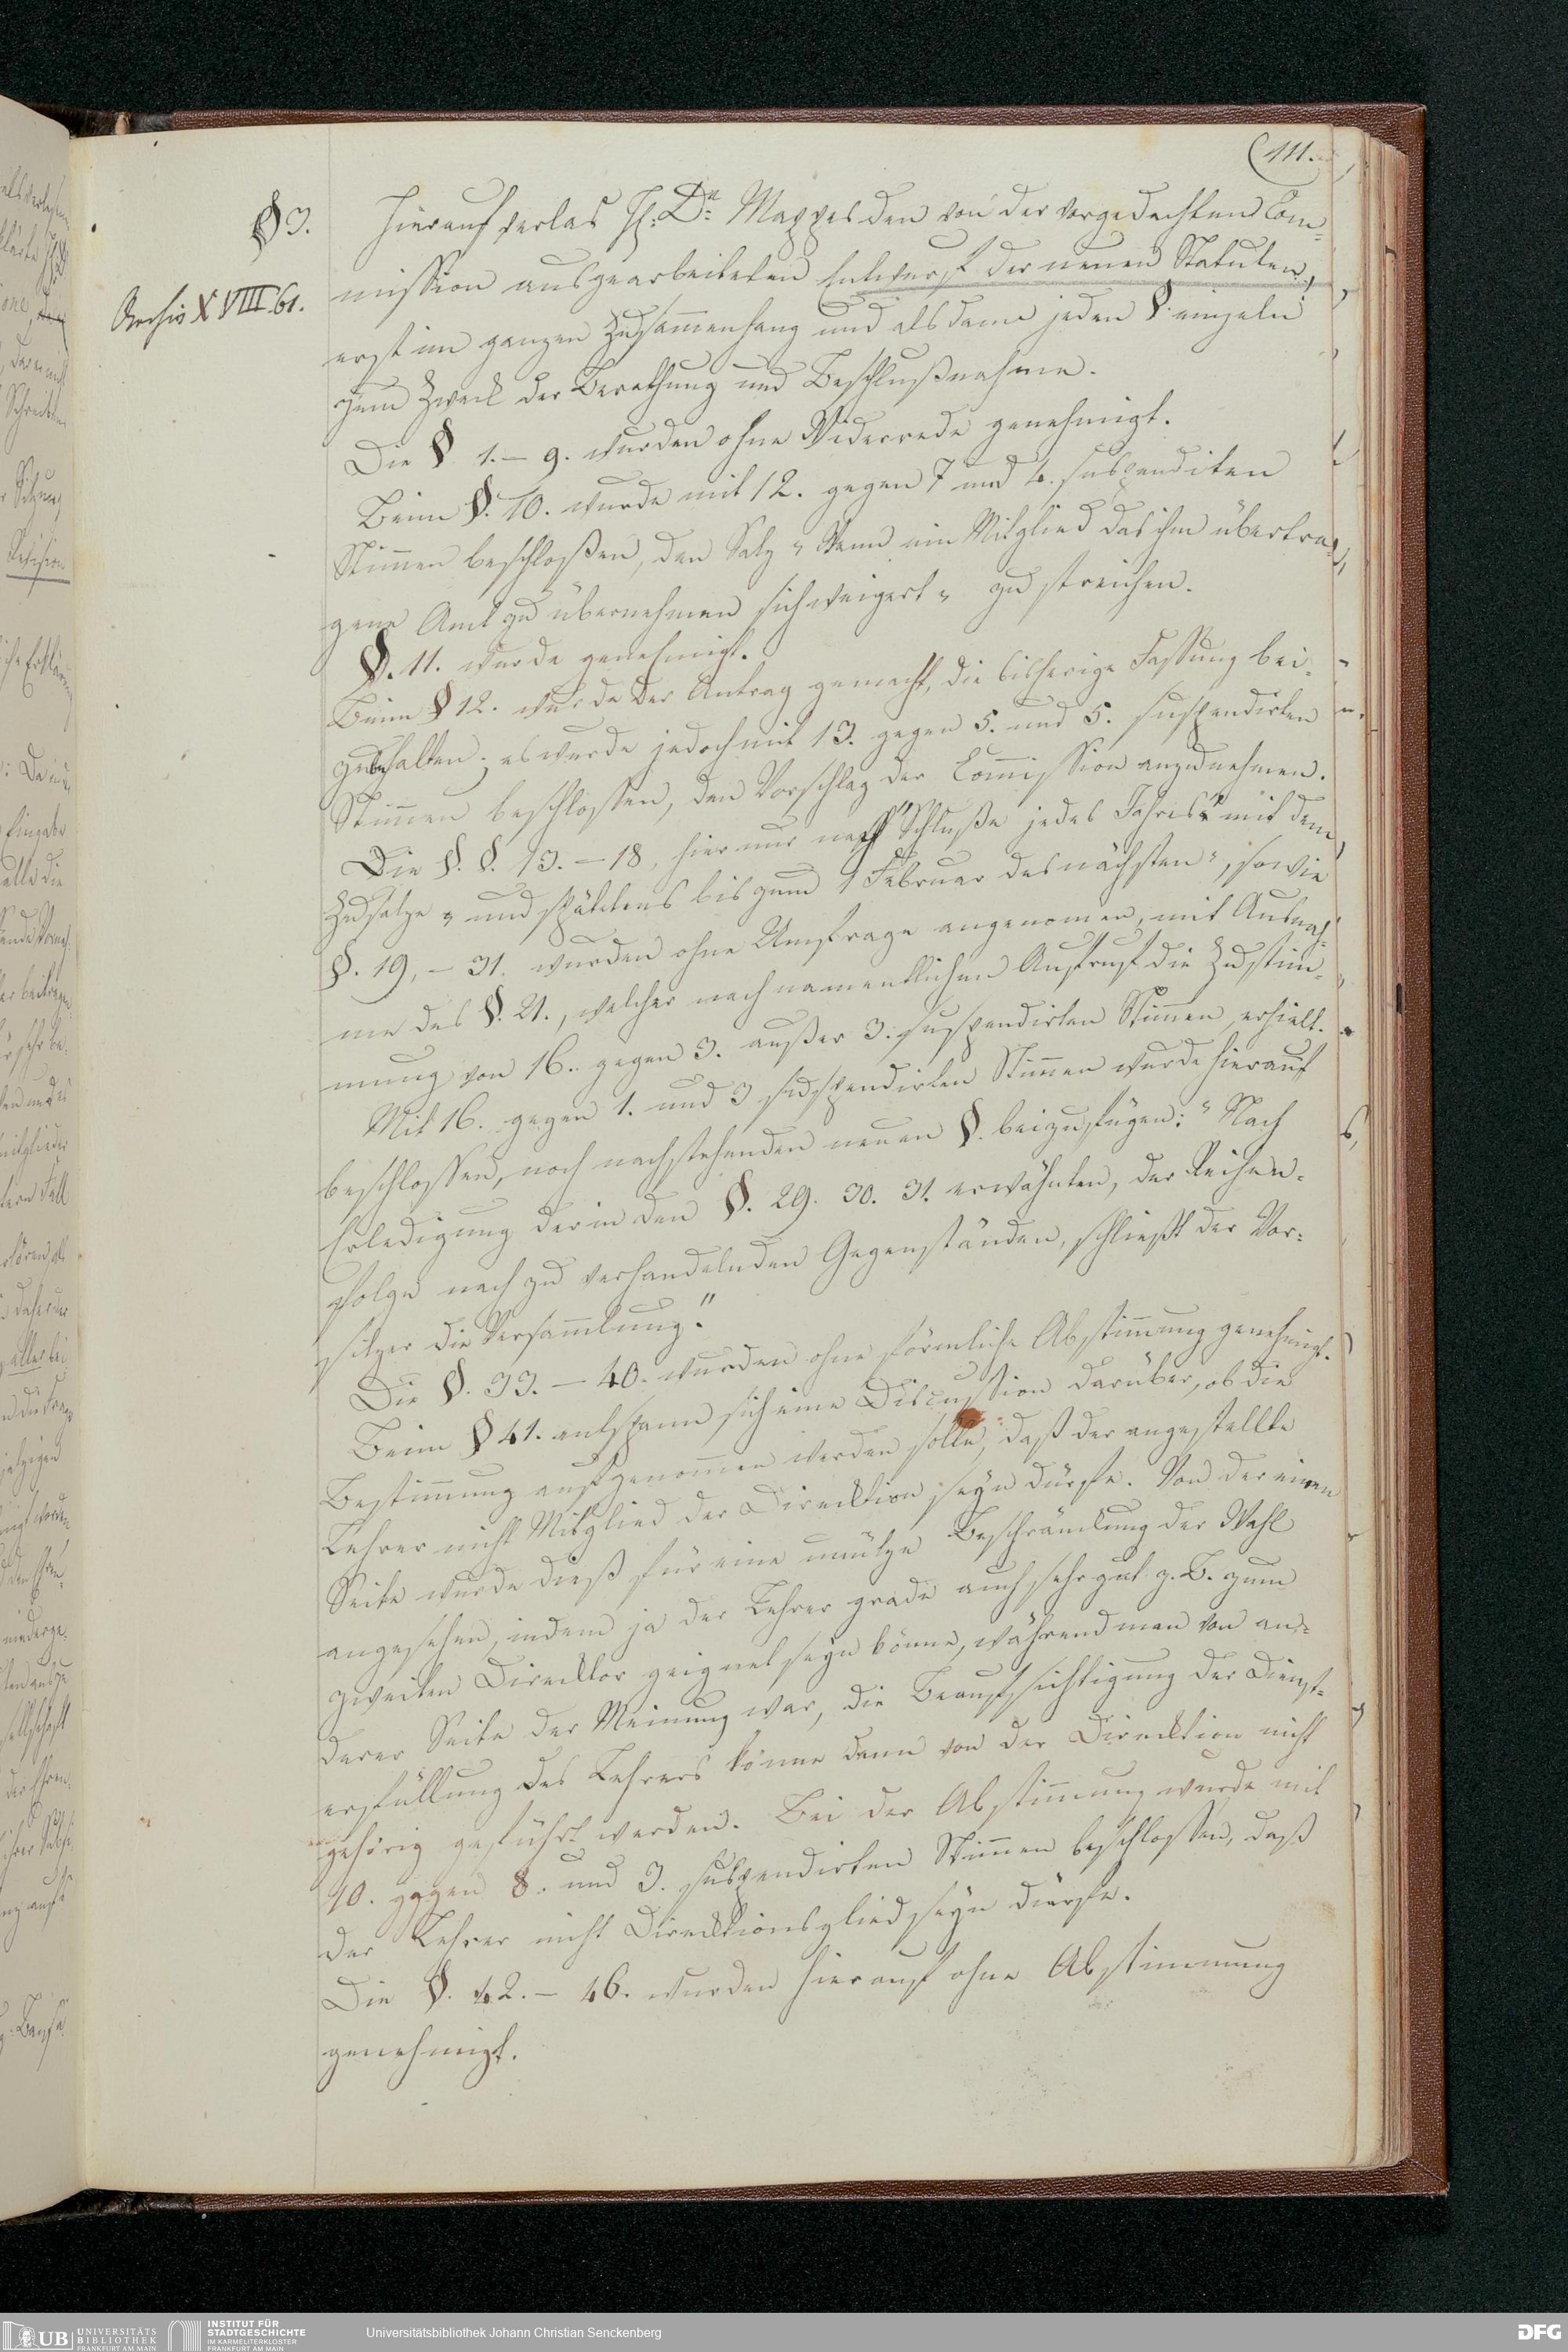 111.
§ 3.
Archiv XVIII 61.
Hierauf verlas H: Dr. Mappes den von der vorgedachten Com=
mission ausgearbeiteten Entwurf der neuen Statuten,
erst im ganzen Zusam̄enhang und alsdann jeden §. einzeln
zum Zweck der Berathung und Beschlußnahme.
Die § 1.– 9. wurden ohne Widerrede genehmigt.
Beim §. 10. wurde mit 12. gegen 7 und 4. suspendirten
Stim̄en beschloßen, den Satz „Wenn ein Mitglied das ihm übertra=
gene Amt zu übernehmen sich weigert„ zu streichen.
§. 11. wurde genehmigt.
Beim § 12. wurde der Antrag gemacht, die bisherige Fassung bei=
zubehalten; es wurde jedoch mit 13. gegen 5. und 5. suspendirten
Stim̄en beschlossen, den Vorschlag der Com̄ission anzunehmen.
Die §. §. 13.– 18, hier nur nach "Schluße jedes Jahres" mit dem
Zusatze „und spätstens bis zum 1 Februar des nächsten", sowie
§. 19,– 31. wurden ohne Umfrage angenom̄en, mit Ausnah=
me des §. 21., welcher nach namentlichem Aufruf die Zustim=
mung von 16. gegen 3. außer 3. suspendirten Stim̄en, erhielt.
Mit 16. gegen 1. und 3 suspendirten Stim̄en wurde hierauf
beschlossen, noch nachstehenden neuen §. beizufügen: "Nach
Erledigung der in den §. 29. 30. 31. erwähnten, der Reihen=
folge nach zu verhandelnden Gegenständen, schließt der Vor=
sitzer die Versam̄lung."
Die §. 33.– 40. wurden ohne förmliche Abstim̄ung genehmigt.
Beim § 41. entspann sich eine Discussion darüber, ob die
Bestim̄ung aufgenom̄en werden solle, daß der angestellte
Lehrer nicht Mitglied der Direcktion seyn dürfe. Von der einen
Seite wurde dieß für eine unnütze Beschränckung der Wahl
angesehen, indem ja der Lehrer grade auch sehr gut z. B. zum
zweiten Direcktor geignet seyn könne, während man von an=
derer Seite der Meinung war, die Beaufsichtigung der Dienst=
erfüllung des Lehrers könne dann von der Direcktion nicht
gehörig geführt werden. Bei der Abstim̄ung wurde mit
10. gegen 8. und 3. suspendirten Stim̄en beschlossen, daß
der Lehrer nicht Direcktionsglied seyn dürfe.
Die §. 42.– 46. wurden hierauf ohne Abstimmung
genehmigt.
UB UNIVERSITÄTS
BIBLIOTHEK
FRANKFURT AM MAIN
INSTITUT FÜR
STADTGESCHICHTE
IM KARMELITERKLOSTER
FRANKFURT AM MAIN
Universitätsbibliothek Johann Christian Senckenberg
DFG